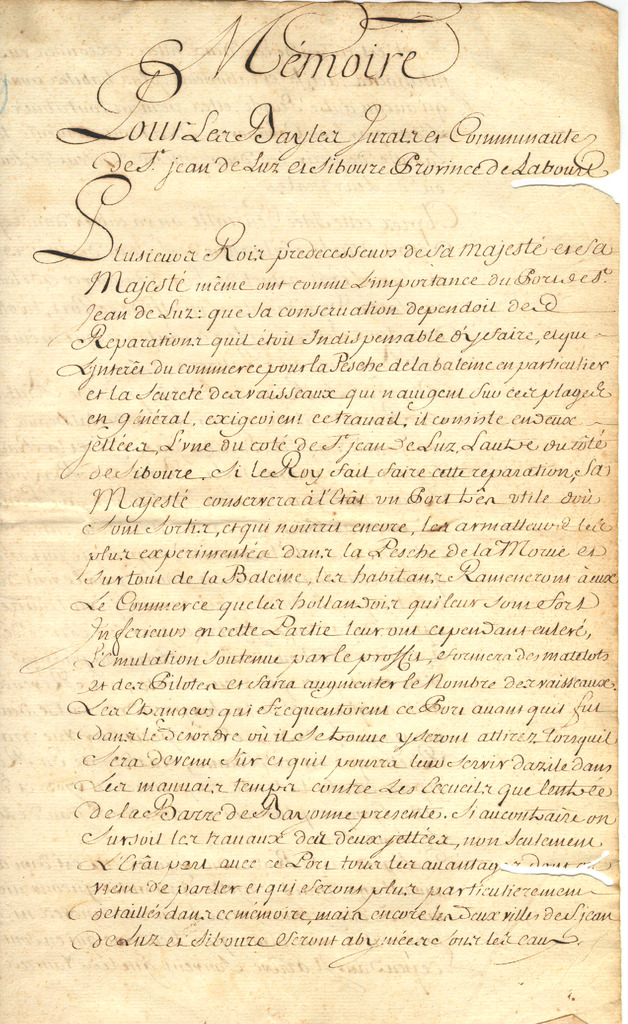 Mémoire
Pour Les Bayles Jurats et Communauté
de St. jean de Luz et Siboure Province de Labourt
Plusieurs Rois predecesseurs de sa majesté et sa
Majesté même ont connu L'importance du Port de St.
Jean de Luz: que sa conservation dependoit des
Reparations quil étoit Indispensable d'y faire, et que
L'interêt du commerce pour la Pesche de la baleine en particulier
et la Seureté des vaisseaux qui navigent sur ces plages
en général, exigeoient ce travail, il consiste en deux
jettées, L'vne du coté de St. jean de Luz, L'autre du côté
de Siboure. Si le Roy fait faire cette reparation, Sa
Majesté conservera à l'Etat vn Port très vtile d'où
Sont Sortis, et qui nourrit encore, les armatteurs les
plus experimentés dans la Pesche de la Morue et
Surtout de la Baleine, les habitans Rameneront à eux
Le Commerce que les hollandois qui leur sont fort
Inferieurs en cette Partie leur ont cependant enlevé,
L'Emulation soutenue par le proffit, formera des matelots
et des Pilotes et faira augmenter le Nombre des vaisseaux.
Les Etrangers qui frequentoient ce Port avant quil fut
dans le desordre où il se trouve y seront attirez lorsquil
Sera devenu Sûr et quil pourra leur Servir d'azile dans
Les mauvais temps contre Les Ecueils que l'entrée
de la Barre de Bayonne presente. Si au contraire on
Sursoit les travaux des deux jettées, non seulement
L'Etat perd avec ce Port tous les avantages dont on
vient de parler et qui seront plus particulierement
detaillés dans ce mémoire, mais encore les deux villes de St jean
de Luz et Siboure seront abymées sous les eaux.